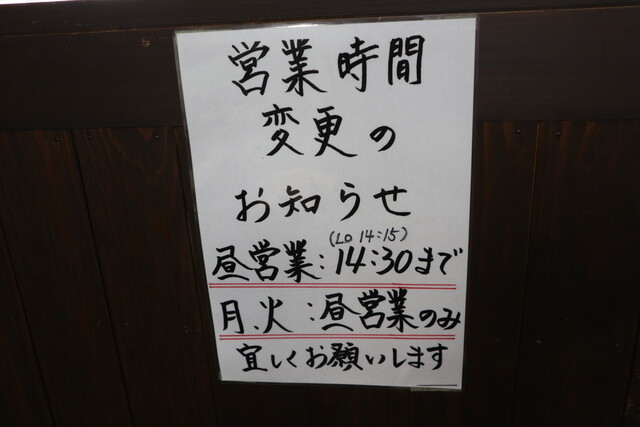 営業時間
変更の
お知らせ
(LO 14:15)
昼営業:14:30まで
月、火:昼営業のみ
宜しくお願いします